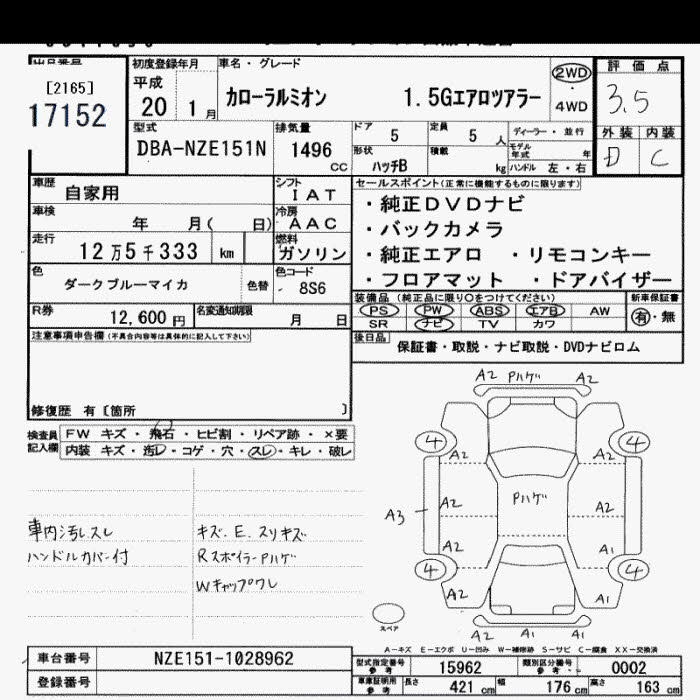 出品番号
[2165]
17152
初度登録年月
平成
20 1月
車名・グレード
カローラルミオン 1.5Gエアロツアラー
2WD
4WD
評価点
3.5
外装 内装
D C
型式
DBA-NZE151N
排気量
1496 cc
ドア 5
定員 5 人
形状 ハッチB
積載 kg
ディーラー・並行
モデル年式 年
ハンドル 左・右
車歴 自家用
車検 年 月( 日)
走行 12万5千333 km
色 ダークブルーマイカ 色替
シフト IAT
冷房 AAC
燃料 ガソリン
色コード 8S6
セールスポイント(正常に機能するものに限ります)
・純正DVDナビ
・バックカメラ
・純正エアロ ・リモコンキー
・フロアマット ・ドアバイザー
R券 12,600円
名変通知期限 月 日
装備品 (純正品に限り○をつけてください)
PS PW ABS エアB AW
SR ナビ TV カワ
新車保証書
有・無
後日品 保証書・取説・ナビ取説・DVDナビロム
注意事項申告欄(不具合内容等は具体的に記入して下さい)
修復歴 有〔箇所 〕
検査員記入欄
FW キズ・飛石・ヒビ割・リペア跡・×要
内装 キズ・汚レ・コゲ・穴・スレ・キレ・破レ
車内汚レスレ
ハンドルカバー付
キズ.E.スリキズ
RスポイラーPハゲ
Wキャップワレ
A2 Pハゲ A2
4 4
A2 A1
Pハゲ
A3 A2 A2
A2 A1
4 4
A2 A1
A2 A1 A1
スペア
A-キズ E-エクボ U-凹み W-補修跡 S-サビ C-腐食 XX-交換済
車台番号 NZE151-1028962
登録番号
型式指定番号 参考 15962
類別区分番号 参考 0002
車庫証明用 参考 長さ 421 cm 幅 176 cm 高さ 163 cm